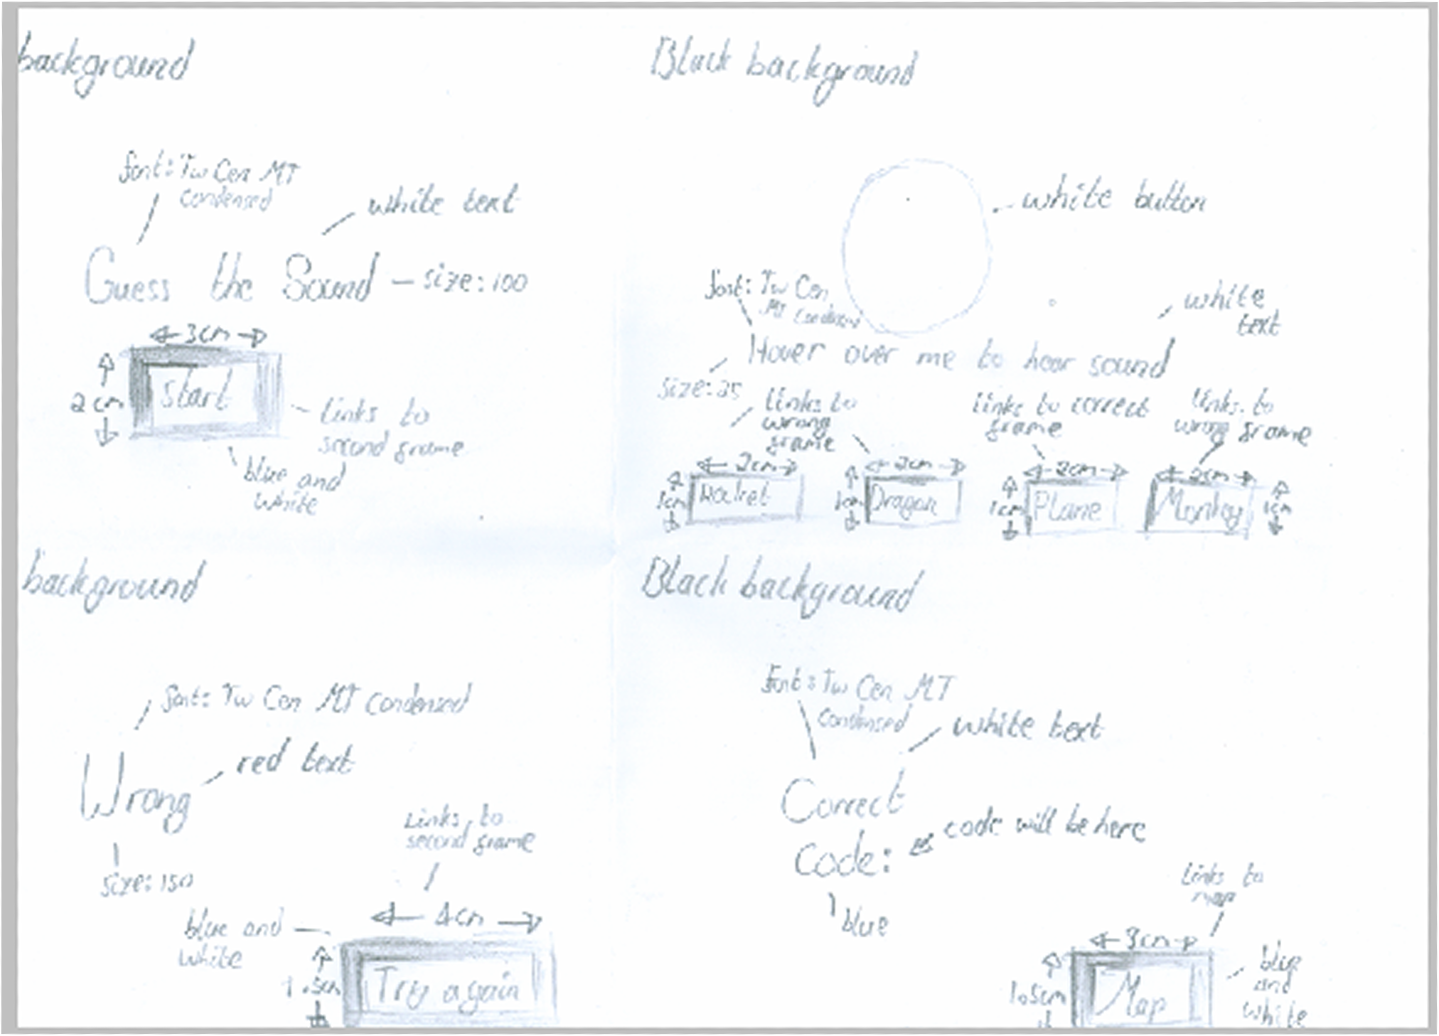 background
font: Tw Cen MT
Condensed
white text
Guess the Sound
size: 100
3cm
2cm
Start
Links to
second frame
blue and
white
Black background
white button
font: Tw Cen
MT Condensed
white
text
Hover over me to hear sound
size: 25
Links to
wrong
frame
Links to correct
frame
Links to
wrong frame
2cm
2cm
2cm
2cm
1cm
Rocket
1cm
Dragon
1cm
Plane
Monkey
1cm
background
font: Tw Cen MT Condensed
red text
Wrong
size: 150
Links to
second frame
blue and
white
4cm
1.5cm
Try again
Black background
font: Tw Cen MT
Condensed
white text
Correct
Code:
code will be here
blue
Links to
map
3cm
1.5cm
Map
blue
and
white